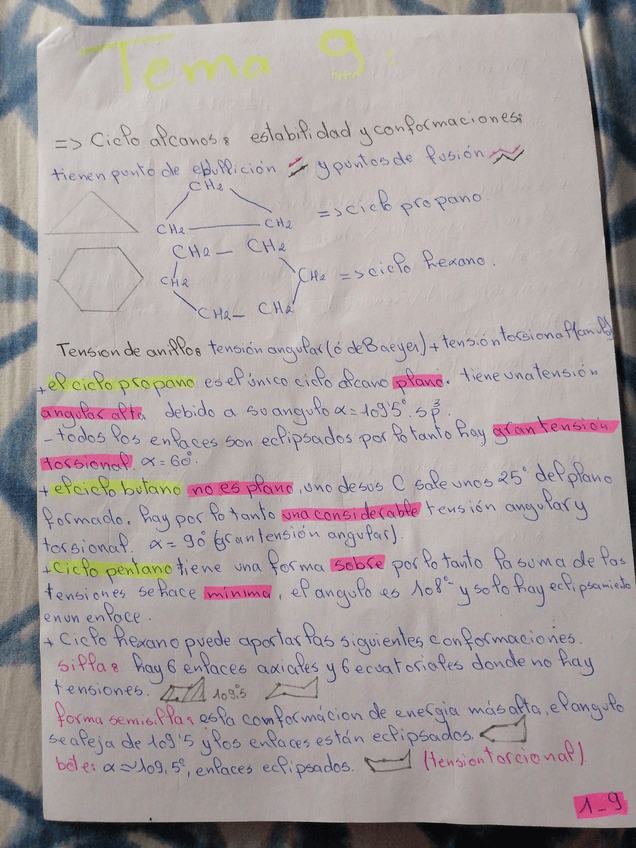 Tema 9:
=> Ciclo alcanos: estabilidad y conformaciones:
tienen punto de ebullición y puntos de fusión
CH2
CH2 CH2 => ciclo propano.
CH2 — CH2
CH2 CH2 => ciclo hexano.
CH2 — CH2
Tension de anillo: tensión angular (ó de Baeyer) + tensión torsional
+ el ciclo propano es el único ciclo alcano plano. tiene una tensión
angular alta debido a su angulo α = 109'5°. sp3.
- todos los enlaces son eclipsados por lo tanto hay gran tensión
torsional. α = 60°.
+ el ciclo butano no es plano, uno de sus C sale unos 25° del plano
formado. hay por lo tanto una considerable tensión angular y
torsional. α = 90° (gran tensión angular).
+ Ciclo pentano tiene una forma sobre por lo tanto la suma de las
tensiones se hace mínima, el angulo es 108° y solo hay eclipsamiento
en un enlace.
+ Ciclo hexano puede aportar las siguientes conformaciones.
silla: hay 6 enlaces axiales y 6 ecuatoriales donde no hay
tensiones. 109°5
forma semisilla: es la conformación de energia más alta, el angulo
se aleja de 109'5 y los enlaces están eclipsados.
bote: α ≈ 109,5°, enlaces eclipsados. (tension torcional).
1_9